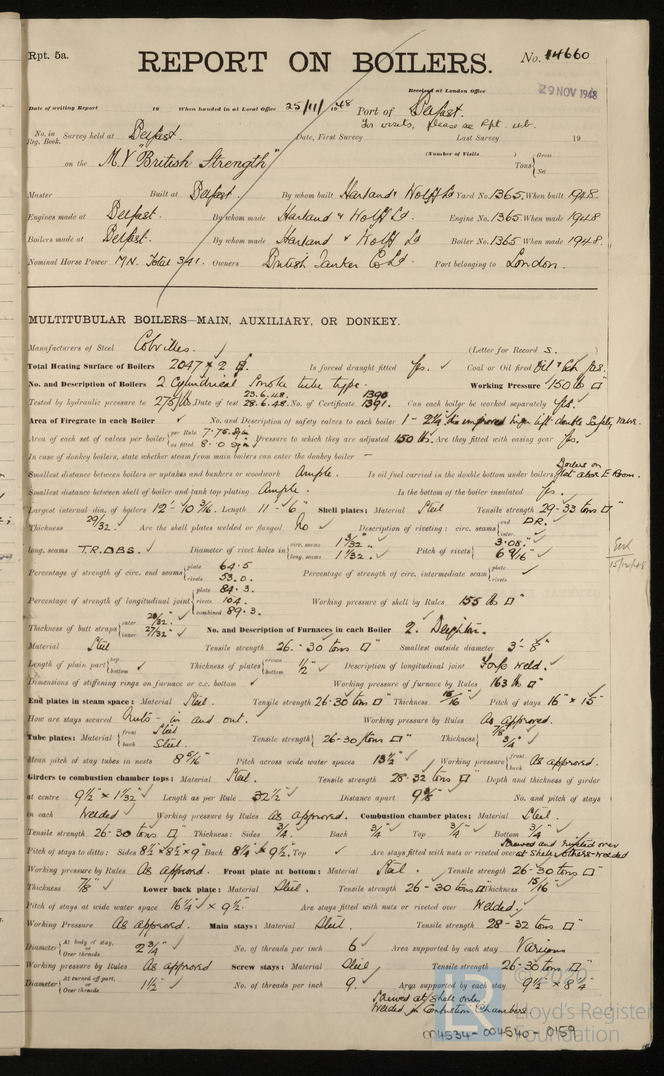 Rpt. 5a.
REPORT ON BOILERS.
No. 14660
Received at London Office
29 NOV 1948
Date of writing Report 19 When handed in at Local Office 25/11/1948 Port of Belfast.
For visits, please see Rpt.
No. in Reg. Book. Survey held at Belfast. Date, First Survey Last Survey 19
(Number of Visits )
on the M.V "British Strength" Tons { Gross Net
Master Built at Belfast. By whom built Harland & Wolff Ld Yard No. 1365. When built 1948.
Engines made at Belfast. By whom made Harland & Wolff Ld. Engine No. 1365. When made 1948
Boilers made at Belfast. By whom made Harland & Wolff Ld Boiler No. 1365 When made 1948.
Nominal Horse Power MN. Total 341. Owners British Tanker Co Ld. Port belonging to London.
MULTITUBULAR BOILERS—MAIN, AUXILIARY, OR DONKEY.
Manufacturers of Steel Colvilles. (Letter for Record S. )
Total Heating Surface of Boilers 2047 x 2 Is forced draught fitted Yes. Coal or Oil fired Oil &
No. and Description of Boilers 2 Cylindrical Smoke tube type. Working Pressure 150 lb □"
Tested by hydraulic pressure to 275 lbs. Date of test 23.6.48. 28.6.48. No. of Certificate 1390 1391. Can each boiler be worked separately Yes.
Area of Firegrate in each Boiler No. and Description of safety valves to each boiler 1 - 2¼" improved high lift double Safety
Area of each set of valves per boiler { per Rule 7.76 as fitted 8.0 Pressure to which they are adjusted 150 lbs. Are they fitted with easing gear Yes.
In case of donkey boilers, state whether steam from main boilers can enter the donkey boiler —
Smallest distance between boilers or uptakes and bunkers or woodwork Ample. Is oil fuel carried in the double bottom under boilers Boilers on flat above E Room.
Smallest distance between shell of boiler and tank top plating Ample. Is the bottom of the boiler insulated Yes.
Largest internal dia. of boilers 12'-10 3/16. Length 11'-6" Shell plates: Material Steel Tensile strength 29-33 tons □"
Thickness 29/32. Are the shell plates welded or flanged No Description of riveting: circ. seams { end D.R. inter.
long. seams T.R.D.B.S. Diameter of rivet holes in { circ. seams 1 3/32" long. seams 1 1/32". Pitch of rivets { 3.08" 6 9/16"
Percentage of strength of circ. end seams { plate 64.5 rivets 53.0. Percentage of strength of circ. intermediate seam { plate rivets
Percentage of strength of longitudinal joint { plate 84.3. rivets 104. combined 89.3. Working pressure of shell by Rules 155 lb □"
Thickness of butt straps { outer inner 27/32" No. and Description of Furnaces in each Boiler 2. Deighton.
Material Steel Tensile strength 26-30 tons □" Smallest outside diameter 3'-8"
Length of plain part { top bottom Thickness of plates { crown bottom ½" Description of longitudinal joint Forge weld.
Dimensions of stiffening rings on furnace or c.c. bottom Working pressure of furnace by Rules 163 lb □"
End plates in steam space: Material Steel. Tensile strength 26-30 tons □" Thickness 15/16 Pitch of stays 16" x 15"
How are stays secured Nuts - in and out. Working pressure by Rules As approved.
Tube plates: Material { front Steel back Steel. Tensile strength { 26-30 tons □" Thickness { 7/8" 3/4"
Mean pitch of stay tubes in nests 8 5/16" Pitch across wide water spaces 13½" Working pressure { front back As approved.
Girders to combustion chamber tops: Material Steel. Tensile strength 28-32 tons □" Depth and thickness of girder
at centre 9½" x 1 1/32" Length as per Rule 32½" Distance apart 9 No. and pitch of stays
in each Welded Working pressure by Rules As approved. Combustion chamber plates: Material Steel.
Tensile strength 26-30 tons □" Thickness: Sides ¾". Back ¾" Top ¾" Bottom ¾"
Pitch of stays to ditto: Sides 8½" x 8½" x 9" Back 8¼ x 9½. Top Are stays fitted with nuts or riveted over Screwed and riveted over at shell, others welded
Working pressure by Rules As approved. Front plate at bottom: Material Steel. Tensile strength 26-30 tons □"
Thickness 7/8" Lower back plate: Material Steel. Tensile strength 26-30 tons □" Thickness 15/16"
Pitch of stays at wide water space 16¼" x 9½" Are stays fitted with nuts or riveted over Welded.
Working Pressure As approved. Main stays: Material Steel. Tensile strength 28-32 tons □"
Diameter { At body of stay, or Over threads. 2¾" No. of threads per inch 6 Area supported by each stay Various
Working pressure by Rules As approved Screw stays: Material Steel Tensile strength 26-30 tons □"
Diameter { At turned off part, or Over threads. 1½" No. of threads per inch 9. Area supported by each stay 9½" x 8¼"
Screwed at shell only
Welded in Combustion Chambers
004534-004540-0159
© 2020
LR
Lloyd's Register
Foundation